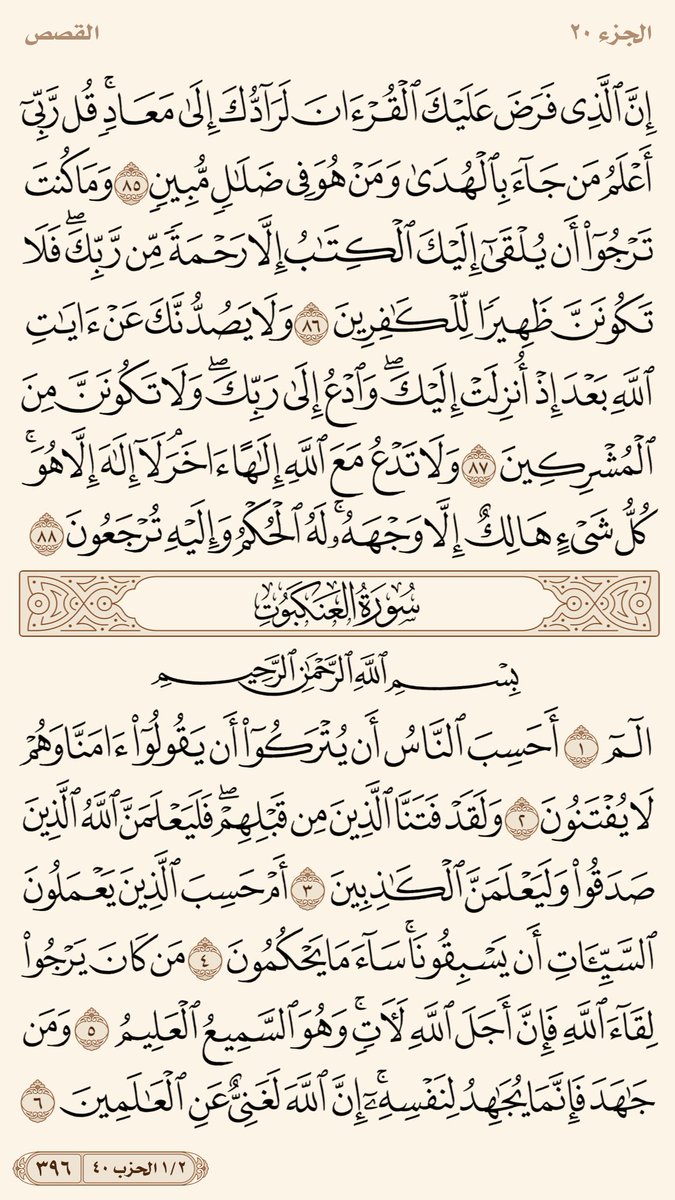 الجزء ٢٠
القصص
إِنَّ ٱلَّذِى فَرَضَ عَلَيْكَ ٱلْقُرْءَانَ لَرَآدُّكَ إِلَىٰ مَعَادٍۢ ۚ قُل رَّبِّىٓ
أَعْلَمُ مَن جَآءَ بِٱلْهُدَىٰ وَمَنْ هُوَ فِى ضَلَٰلٍۢ مُّبِينٍۢ ٨٥ وَمَا كُنتَ
تَرْجُوٓا۟ أَن يُلْقَىٰٓ إِلَيْكَ ٱلْكِتَٰبُ إِلَّا رَحْمَةًۭ مِّن رَّبِّكَ ۖ فَلَا
تَكُونَنَّ ظَهِيرًۭا لِّلْكَٰفِرِينَ ٨٦ وَلَا يَصُدُّنَّكَ عَنْ ءَايَٰتِ
ٱللَّهِ بَعْدَ إِذْ أُنزِلَتْ إِلَيْكَ ۖ وَٱدْعُ إِلَىٰ رَبِّكَ ۖ وَلَا تَكُونَنَّ مِنَ
ٱلْمُشْرِكِينَ ٨٧ وَلَا تَدْعُ مَعَ ٱللَّهِ إِلَٰهًا ءَاخَرَ ۘ لَآ إِلَٰهَ إِلَّا هُوَ ۚ
كُلُّ شَىْءٍ هَالِكٌ إِلَّا وَجْهَهُۥ ۚ لَهُ ٱلْحُكْمُ وَإِلَيْهِ تُرْجَعُونَ ٨٨
سُورَةُ العَنكَبُوتِ
بِسْمِ ٱللَّهِ ٱلرَّحْمَٰنِ ٱلرَّحِيمِ
الٓمٓ ١ أَحَسِبَ ٱلنَّاسُ أَن يُتْرَكُوٓا۟ أَن يَقُولُوٓا۟ ءَامَنَّا وَهُمْ
لَا يُفْتَنُونَ ٢ وَلَقَدْ فَتَنَّا ٱلَّذِينَ مِن قَبْلِهِمْ ۖ فَلَيَعْلَمَنَّ ٱللَّهُ ٱلَّذِينَ
صَدَقُوا۟ وَلَيَعْلَمَنَّ ٱلْكَٰذِبِينَ ٣ أَمْ حَسِبَ ٱلَّذِينَ يَعْمَلُونَ
ٱلسَّيِّـَٔاتِ أَن يَسْبِقُونَا ۚ سَآءَ مَا يَحْكُمُونَ ٤ مَن كَانَ يَرْجُوا۟
لِقَآءَ ٱللَّهِ فَإِنَّ أَجَلَ ٱللَّهِ لَـَٔاتٍۢ ۚ وَهُوَ ٱلسَّمِيعُ ٱلْعَلِيمُ ٥ وَمَن
جَٰهَدَ فَإِنَّمَا يُجَٰهِدُ لِنَفْسِهِۦٓ ۚ إِنَّ ٱللَّهَ لَغَنِىٌّ عَنِ ٱلْعَٰلَمِينَ ٦
١/٢ الحزب ٤٠ ٣٩٦